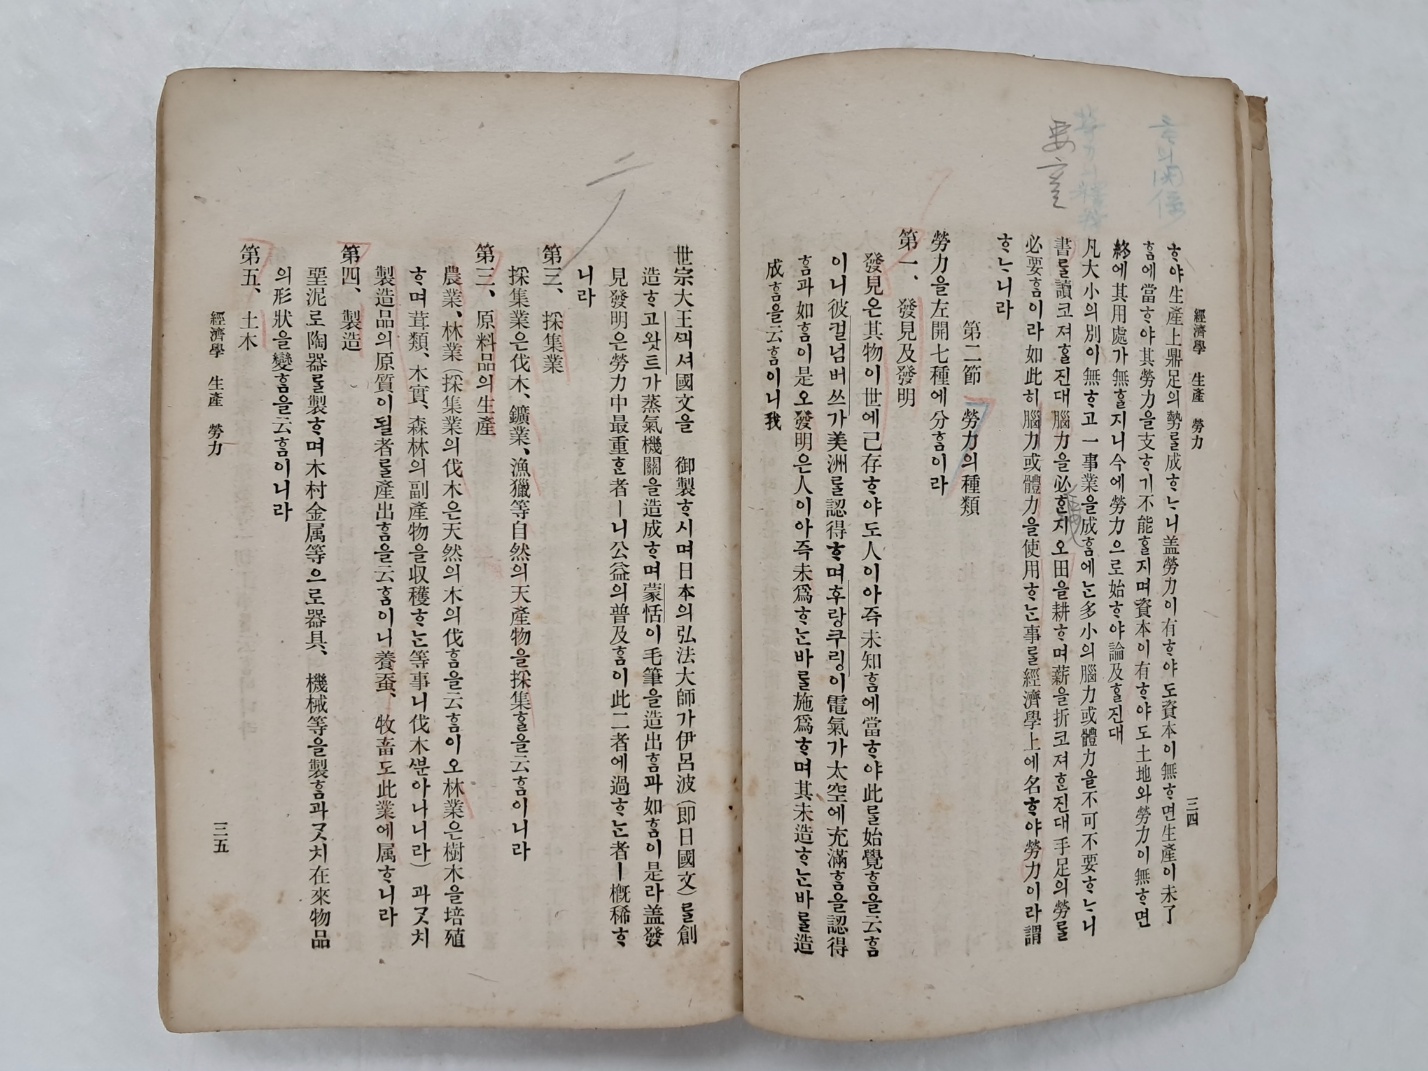 經濟學 生產 勞力
三四
ᄒᆞ야生產上鼎足의勢ᄅᆞᆯ成ᄒᆞᄂᆞ니盖勞力이有ᄒᆞ야도資本이無ᄒᆞ면生產이未了
ᄒᆞᆷ에當ᄒᆞ야其勞力을支ᄒᆞ기不能ᄒᆞᆯ지며資本이有ᄒᆞ야도土地와勞力이無ᄒᆞ면
終에其用處가無ᄒᆞᆯ지니今에勞力으로始ᄒᆞ야論及ᄒᆞᆯ진대
凡大小의別이無ᄒᆞ고一事業을成ᄒᆞᆷ에ᄂᆞᆫ多小의腦力或體力을不可不要ᄒᆞᄂᆞ니
書ᄅᆞᆯ讀코져ᄒᆞᆯ진대腦力을必ᄒᆞᆯ지오田을耕ᄒᆞ며薪을折코져ᄒᆞᆫ진대手足의勞ᄅᆞᆯ
必要ᄒᆞᆷ이라如此히腦力或體力을使用ᄒᆞᄂᆞᆫ事ᄅᆞᆯ經濟學上에名ᄒᆞ야勞力이라謂
ᄒᆞᄂᆞ니라
第二節 勞力의種類
勞力을左開七種에分ᄒᆞᆷ이라
第一、 發見及發明
發見은其物이世에已存ᄒᆞ야도人이아즉未知ᄒᆞᆷ에當ᄒᆞ야此ᄅᆞᆯ始覺ᄒᆞᆷ을云ᄒᆞᆷ
이니彼컬넘버쓰가美洲ᄅᆞᆯ認得ᄒᆞ며후랑쿠링이電氣가太空에充滿ᄒᆞᆷ을認得
ᄒᆞᆷ과如ᄒᆞᆷ이是오發明은人이아즉未爲ᄒᆞᄂᆞᆫ바ᄅᆞᆯ施爲ᄒᆞ며其未造ᄒᆞᄂᆞᆫ바ᄅᆞᆯ造
成ᄒᆞᆷ을云ᄒᆞᆷ이니我
世宗大王ᄭᅴ셔國文을 御製ᄒᆞ시며日本의弘法大師가伊呂波(即日國文)ᄅᆞᆯ創
造ᄒᆞ고와트가蒸氣機關을造成ᄒᆞ며蒙恬이毛筆을造出ᄒᆞᆷ과如ᄒᆞᆷ이是라盖發
見發明은勞力中最重ᄒᆞᆫ者ㅣ니公益의普及ᄒᆞᆷ이此二者에過ᄒᆞᄂᆞᆫ者ㅣ槪稀ᄒᆞ
니라
第三、 採集業
採集業은伐木、鑛業、漁獵等自然의天產物을採集ᄒᆞᆯ을云ᄒᆞᆷ이니라
第三、 原料品의生產
農業、林業(採集業의伐木은天然의木의伐ᄒᆞᆷ을云ᄒᆞᆷ이오林業은樹木을培殖
ᄒᆞ며茸類、木實、森林의副產物을収穫ᄒᆞᄂᆞᆫ等事니伐木ᄲᅮᆫ아나니라) 과ᄀᆞᆺ치
製造品의原質이될者ᄅᆞᆯ產出ᄒᆞᆷ을云ᄒᆞᆷ이니養蚕、牧畜도此業에属ᄒᆞ니라
第四、 製造
堊泥로陶器ᄅᆞᆯ製ᄒᆞ며木村金属等으로器具、機械等을製ᄒᆞᆷ과ᄀᆞᆺ치在來物品
의形狀을變ᄒᆞᆷ을云ᄒᆞᆷ이니라
第五、 土木
經濟學 生產 勞力
三五